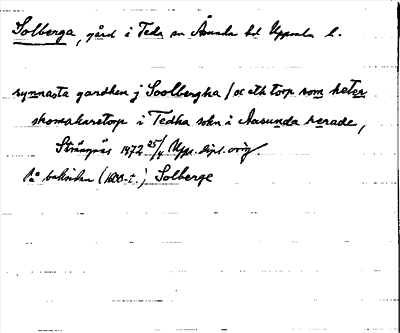 Solberga, gård i Teda sn Åsunda hd Uppsala l.
synnasta gardhen j Soolbergha / oc eth torp som heter
skomakaretorp i Tedha sokn i Aasunda herade,
Strängnäs 1472 25/4 Upps. dipl. orig.
På baksidan (1600-t.) Solberge